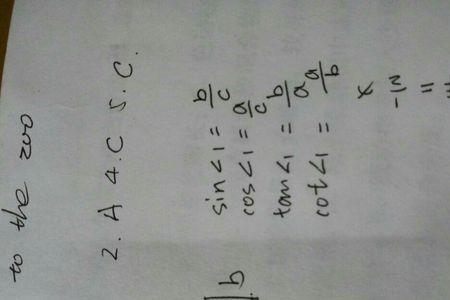 to
2. A 4. C 5. C.
sin∠1 = b/c
cos∠1 = a/c
tan∠1 = b/a
cot∠1 = a/b
x